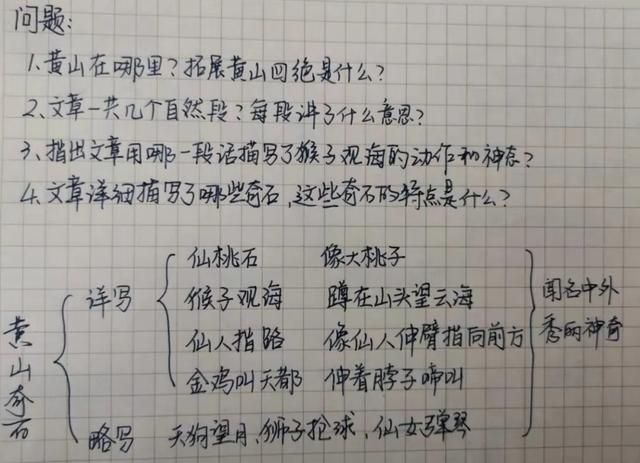 问题:
1、黄山在哪里?拓展黄山四绝是什么?
2、文章一共几个自然段?每段讲了什么意思?
3、指出文章用哪一段话描写了猴子观海的动作和神态?
4、文章详细描写了哪些奇石,这些奇石的特点是什么?
黄山奇石
详写
仙桃石 像大桃子
猴子观海 蹲在山头望云海
仙人指路 像仙人伸臂指向前方
金鸡叫天都 伸着脖子啼叫
略写 天狗望月、狮子抢球、仙女弹琴
闻名中外
秀丽神奇